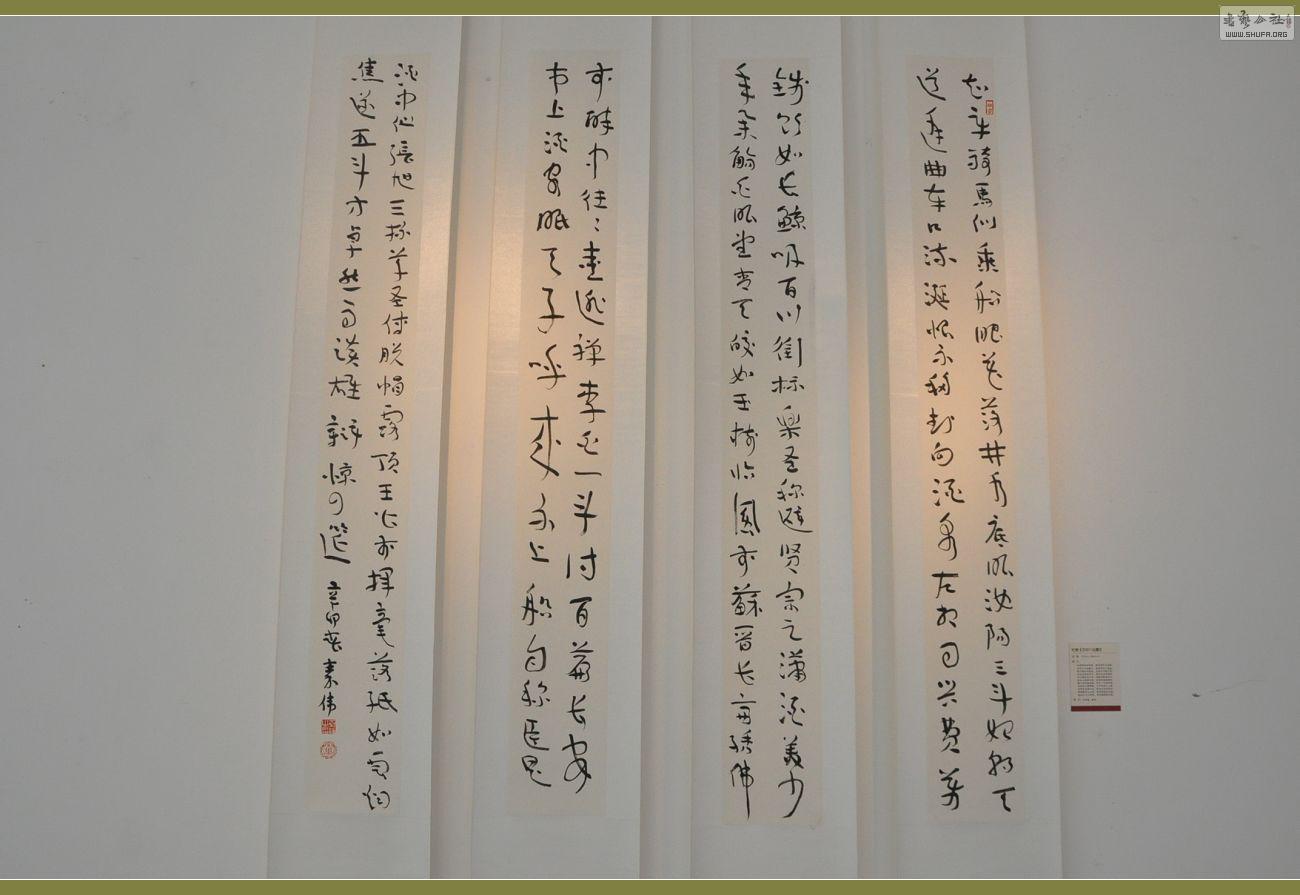 知章骑馬似乘船眼花落井水底眠汝陽三斗始朝天
道逢曲车口流涎恨不移封向酒泉左相日兴費萬
錢飲如长鯨吸百川銜杯樂圣称避贤宗之瀟洒美少
年举觴白眼望青天皎如玉樹临風前蘇晋长齋繡佛
前醉中往々愛逃禅李白一斗诗百篇长安
市上酒家眠天子呼来不上船自称臣是
酒中仙張旭三杯草圣傳脱帽露頂王公前揮毫落紙如雲烟
焦遂五斗方卓然高談雄辯惊四筵
辛卯春素偉
書藝公社
WWW.SHUFA.ORG